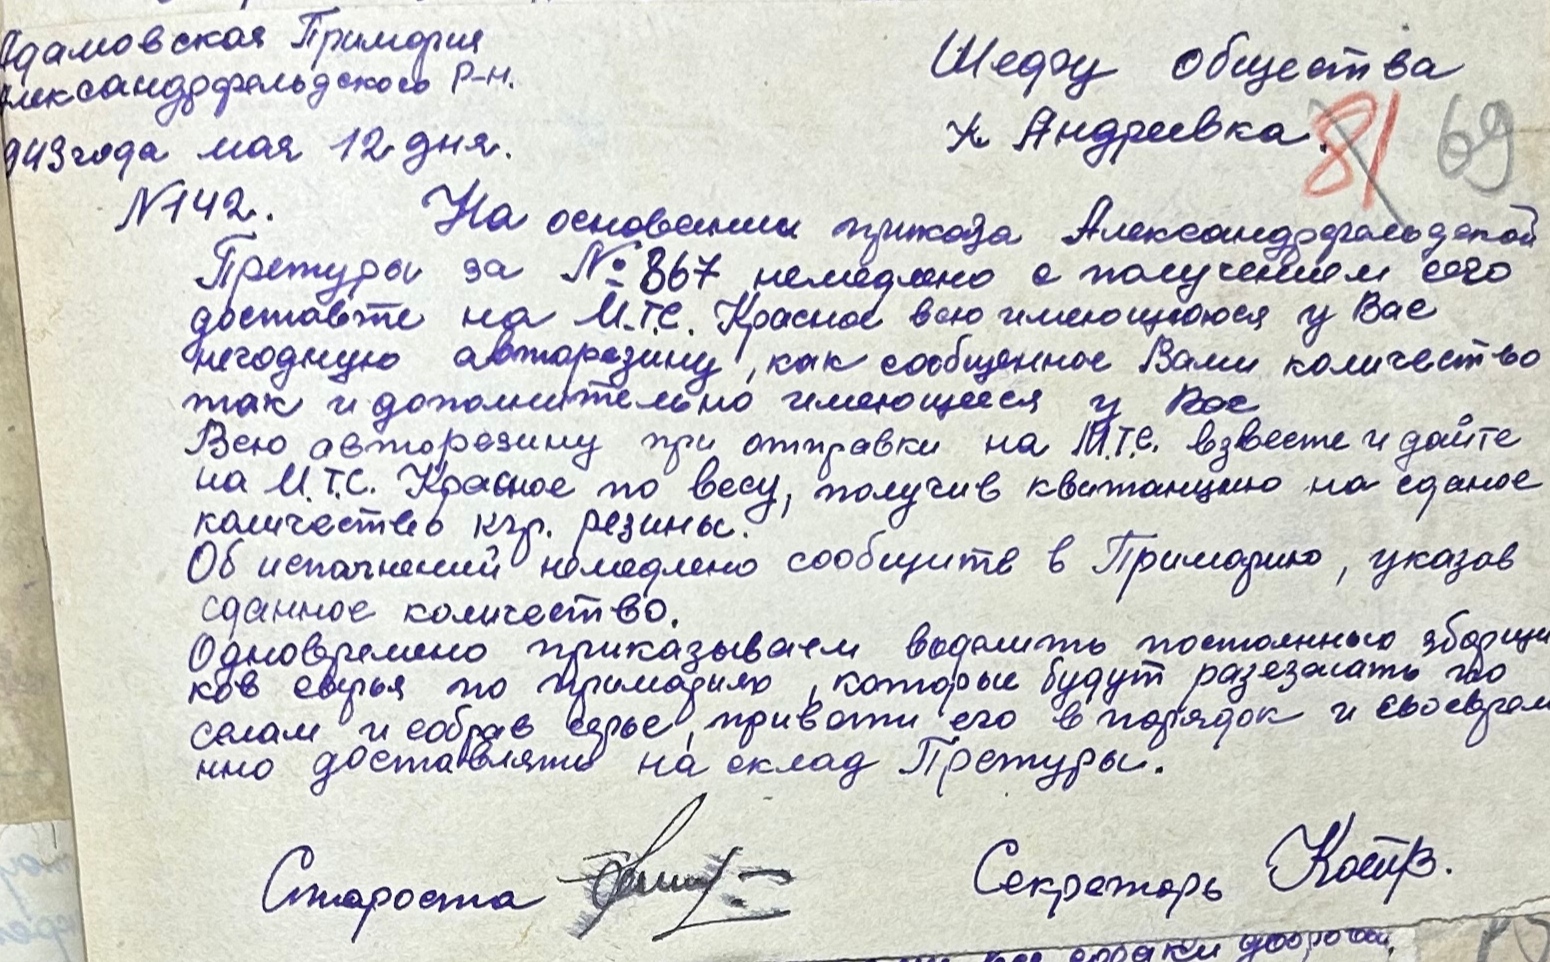 Адамовская Примария
Александрфельдского Р-н.
943 года мая 12 дня.
Шефу общества
х Андреевка.
81 69
№142. На основании приказа Александрфельдской
Претуры за № 867 немедлено с получением сего
доставте на М.Т.С. Красное всю имеющуюся у Вас
негодную авторезину, как сообщенное Вами количество
так и дополнительно имеющееся у Вас
Всю авторезину при отправки на М.Т.С. взвесте и дайте
на М.Т.С. Красное по весу, получив квитанцию на сданое
количество кгр. резины.
Об исполнений немедлено сообщите в Примарию, указав
сданное количество.
Одновремено приказываем выделить постоянныю зборщи
ков сырья по примарию, которые будут разезжать по
селам и собрав сырье, привети его в порядок и своеврем
нно доставляти на склад Претуры.
Староста
Секретарь Котр.